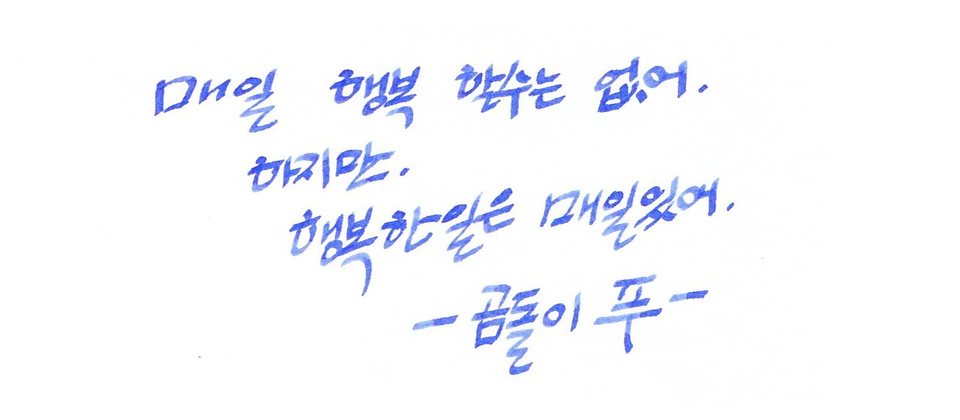 매일 행복 할수는 없어.
하지만.
행복한일은 매일있어.
- 곰돌이 푸 -